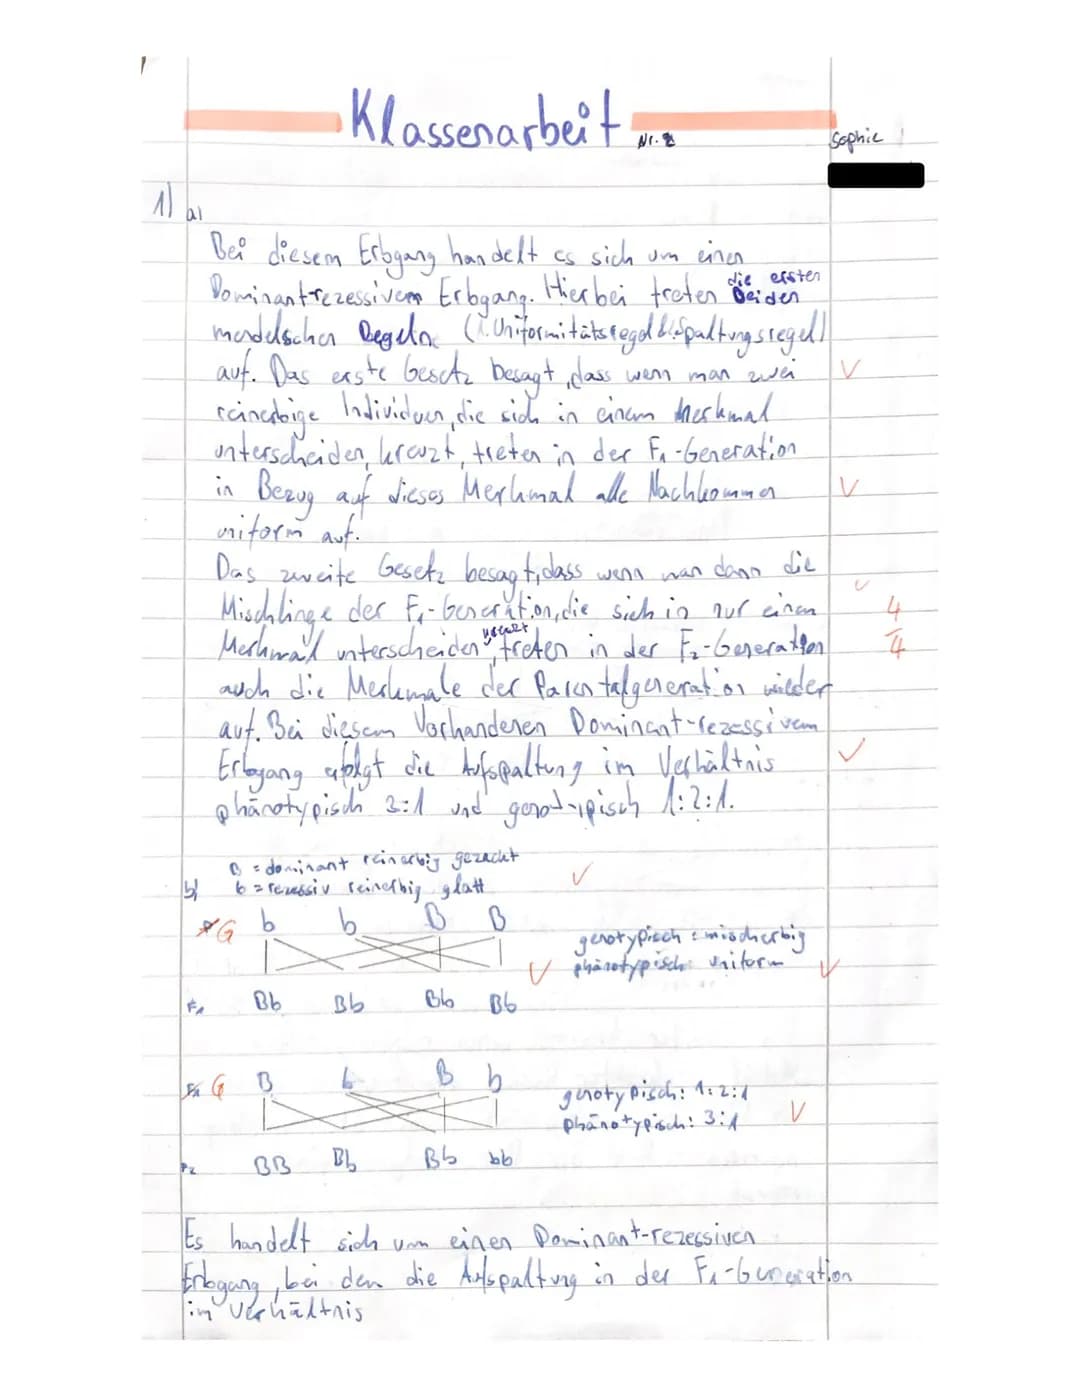 Klassenarbeit Nr. 2
Sophie
1) a)
Bei diesem Erbgang handelt es sich um einen
die ersten
Dominant-rezessivem Erbgang. Hierbei treten beiden
mendelschen Regeln (1. Uniformitätsregel & Spaltungsregel)
auf. Das erste Gesetz besagt, dass wenn man zwei
reinerbige Individuen, die sich in einem Merkmal
unterscheiden, kreuzt, treten in der F₁-Generation
in Bezug auf dieses Merkmal alle Nachkommen
uniform auf.
Das zweite Gesetz besagt, dass wenn man dann die
Mischlinge der F₁-Generation, die sich in nur einen
4/4
kreuzt
Merkmal unterscheiden, treten in der F₂-Generation
auch die Merkmale der Parentalgeneration wieder
auf. Bei diesem Vorhandenen Dominant-rezessivem
Erbgang erfolgt die Aufspaltung im Verhältnis
phänotypisch 3:1 und genotypisch 1:2:1.
B = dominant reinerbig gezackt
b) b = rezessiv reinerbig glatt
G b b B B
genotypisch: mischerbig
phänotypisch: uniform
F₁ Bb Bb Bb Bb
F₁ G B b B b
genotypisch: 1:2:1
phänotypisch: 3:1
F₂ BB Bb Bb bb
Es handelt sich um einen Dominant-rezessiven
Erbgang, bei den die Aufspaltung in der F₁-Generation
im Verhältnis